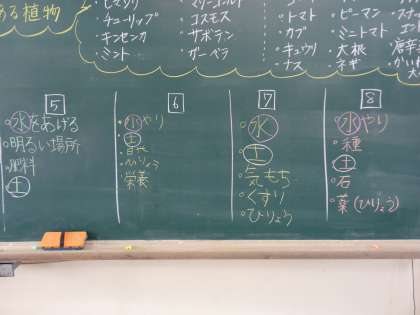 ある植物
ヒマワリ
・チューリップ
・キンセンカ
・ミント
・マリーゴールド
・コスモス
・サボテン
・ガーベラ
・トマト
・カブ
・キュウリ
・ナス
・ピーマン
・ミニトマト
・大根
・ネギ
5
水をあげる
明るい場所
肥料
土
6
水やり
土
ひりょう
栄養
7
水
土
気もち
くすり
ひりょう
8
水やり
種
土
石
薬(ひりょう)